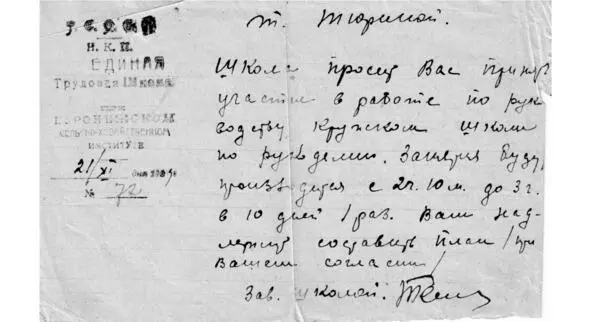 Р. С. Ф. С. Р.
Н. К. П.
ЕДИНАЯ
Трудовая Школа
при
ВОРОНЕЖСКОМ
СЕЛЬСКО-ХОЗЯЙСТВЕННОМ
ИНСТИТУТЕ
21/XI
№ 72
т. Тюриной.
Школа просит Вас принять
участие в работе по рук
водству Кружком школы
по рукоделию. Занятия будут
производится с 2ч. 10м. до 3 г.
в 10 дней / раз. Вам над-
лежит составить план / при
Вашем согласии /
Зав. школой.